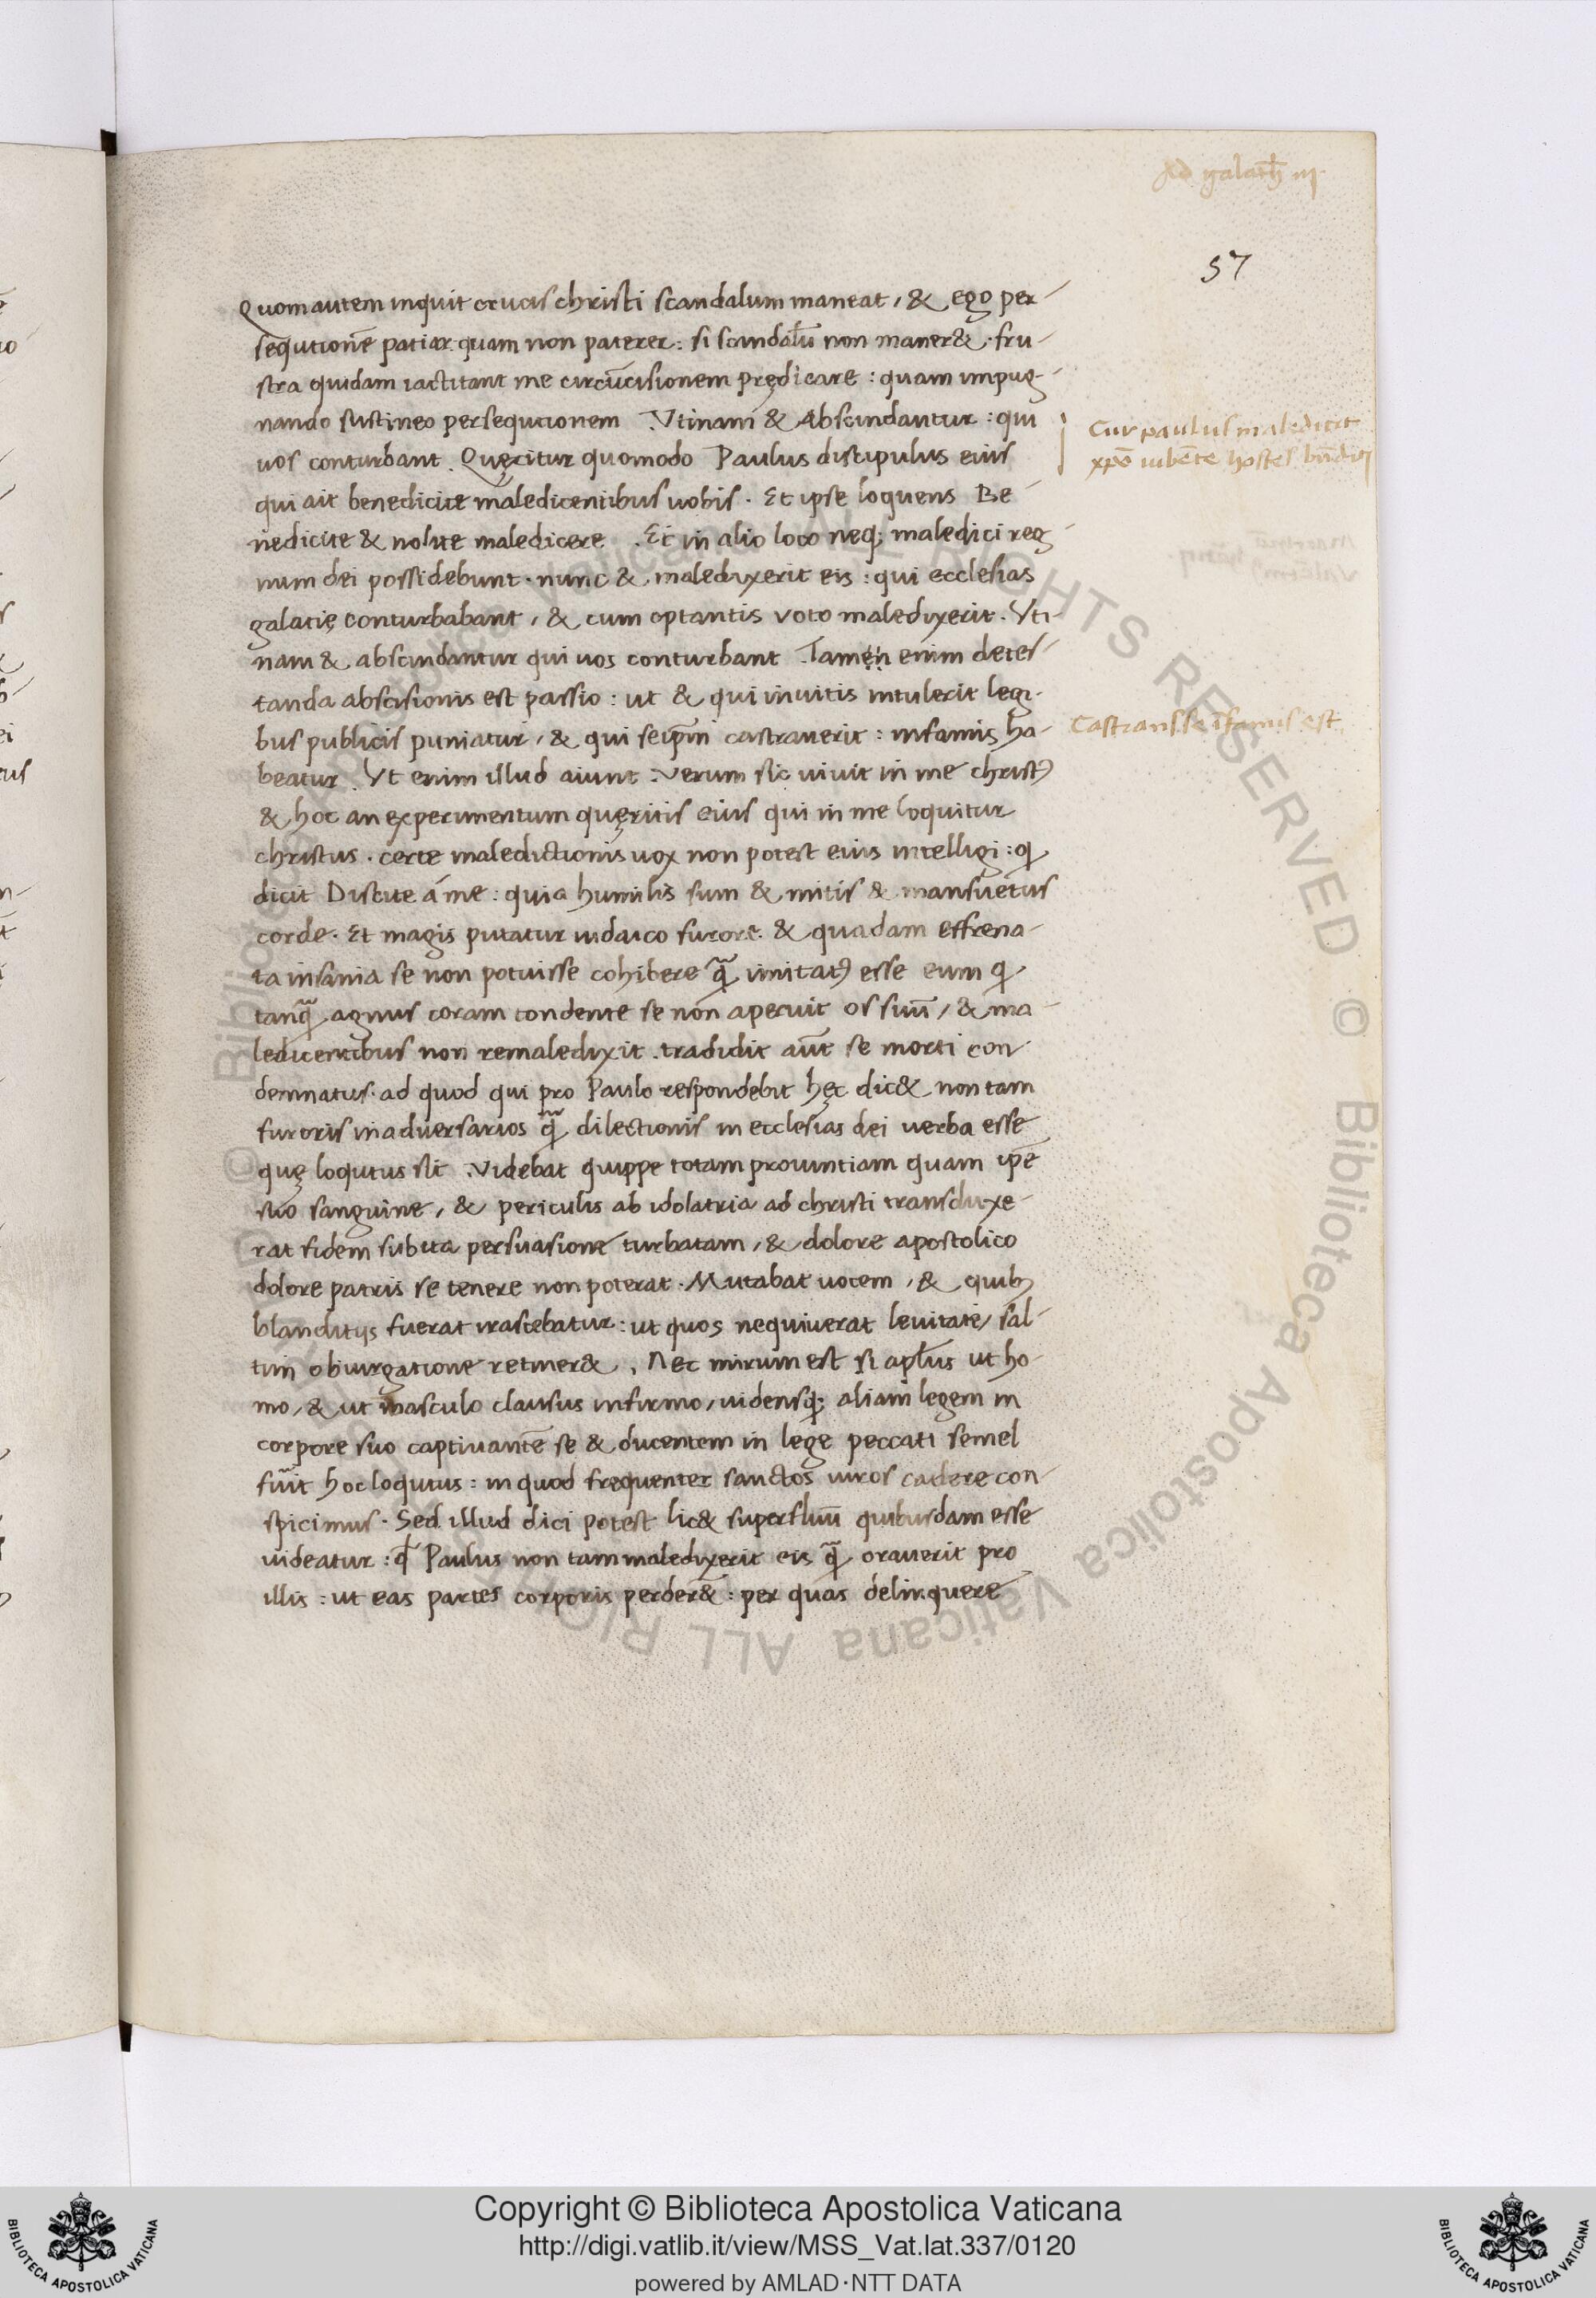 Ad galath iij
57
Quom autem inquit crucis christi scandalum maneat, & ego per-
sequtionē patiar. quam non paterer: si scandalū non maner&. fru-
stra quidam iactitant me circūcisionem prędicare: quam impug-
nando sustineo persequtionem. Vtinam & Abscindantur: qui
uos conturbant. Quęritur quomodo Paulus discipulus eius
qui ait benedicite maledicentibus uobis. Et ipse loquens Be-
nedicite & nolite maledicere. Et in alio loco neq; maledici reg-
num dei possidebunt. nunc & maledixerit eis: qui ecclesias
galatię conturbabant, & cum optantis voto maledixerit. Vti-
nam & abscindantur qui uos conturbant. Tamen enim detes-
tanda abscisionis est passio: ut & qui inuitis intulerit legi-
bus publicis puniatur, & qui seip̄m castrauerit: infamis ha-
beatur. Vt enim illud aiunt. Verum sic uiuit in me christꝰ
& hoc an experimentum quęritis eius qui in me loquitur
christus. certe maledictionis uox non potest eius intelligi: q
dicit Discite á me: quia humilis sum & mitis & mansuetus
corde. Et magis putatur iudaico furore. & quadam effrena-
ta insania se non potuisse cohibere q̄ imitatꝰ esse eum q
tanq̄ agnus coram tondente se non aperuit os suū, & ma-
ledicentibus non remaledixit. tradidit aūt se morti con-
demnatus. ad quod qui pro Paulo respondebit hęc dic& non tam
furoris in aduersarios q̄ dilectionis in ecclesias dei verba esse
quę loqutus sit. Videbat quippe totam prouintiam quam ip̄e
suo sanguine, & periculis ab idolatria ad christi transduxe-
rat fidem subita persuasione turbatam, & dolore apostolico
dolore patris se tenere non poterat. Mutabat uocem, & quibꝰ
blanditijs fuerat irascebatur: ut quos nequiuerat leuitate, sal-
tim obiurgatione retiner&. Nec mirum est si ap̄lus ut ho-
mo, & ut uasculo clausus infirmo, uidensq; aliam legem in
corpore suo captiuantē se & ducentem in lege peccati semel
fuīt hoc loqutus: in quod frequenter sanctos uiros cadere con-
spicimus. Sed illud dici potest lic& superfluū quibusdam esse
uideatur: q̄ Paulus non tam maledixerit eis q̄ orauerit pro
illis: ut eas partes corporis perder&: per quas delinquere
Cur paulus maledicat
xp̄o iubēte hostes bn̄dici
Castrans se īfamis est
© Biblioteca Apostolica Vaticana ALL RIGHTS RESERVED
Copyright © Biblioteca Apostolica Vaticana
http://digi.vatlib.it/view/MSS_Vat.lat.337/0120
powered by AMLAD·NTT DATA
BIBLIOTECA APOSTOLICA VATICANA
BIBLIOTECA APOSTOLICA VATICANA